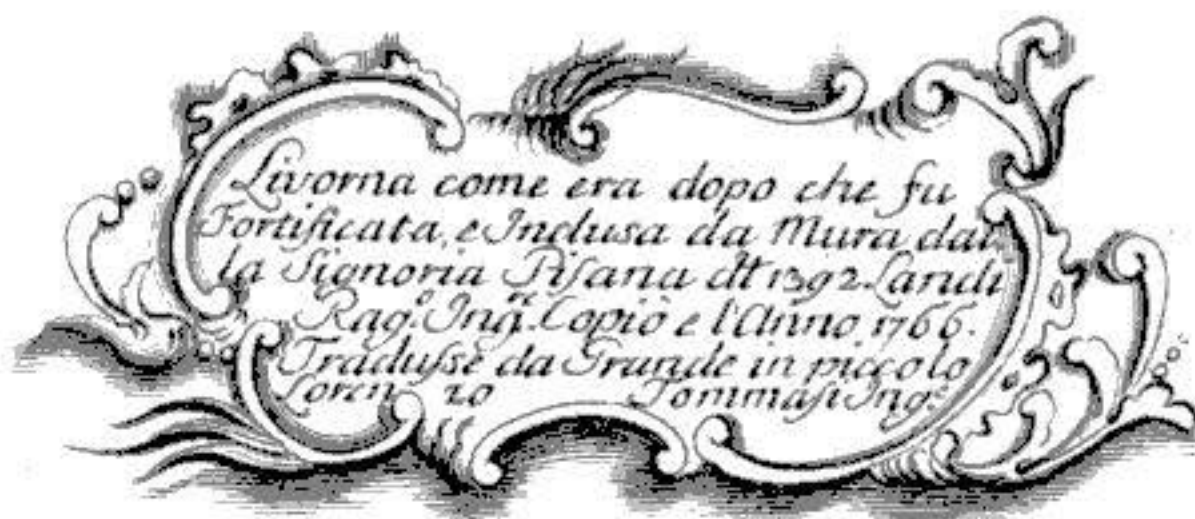 Livorna come era dopo che fu
Fortificata, e Inclusa da Mura dal
la Signoria Pisana dtt 1392. Landi
Rag.º Ing.re Copiò e l'Anno 1766.
Tradusse da Grande in piccolo
Lorenzo Tommasi Ing.e